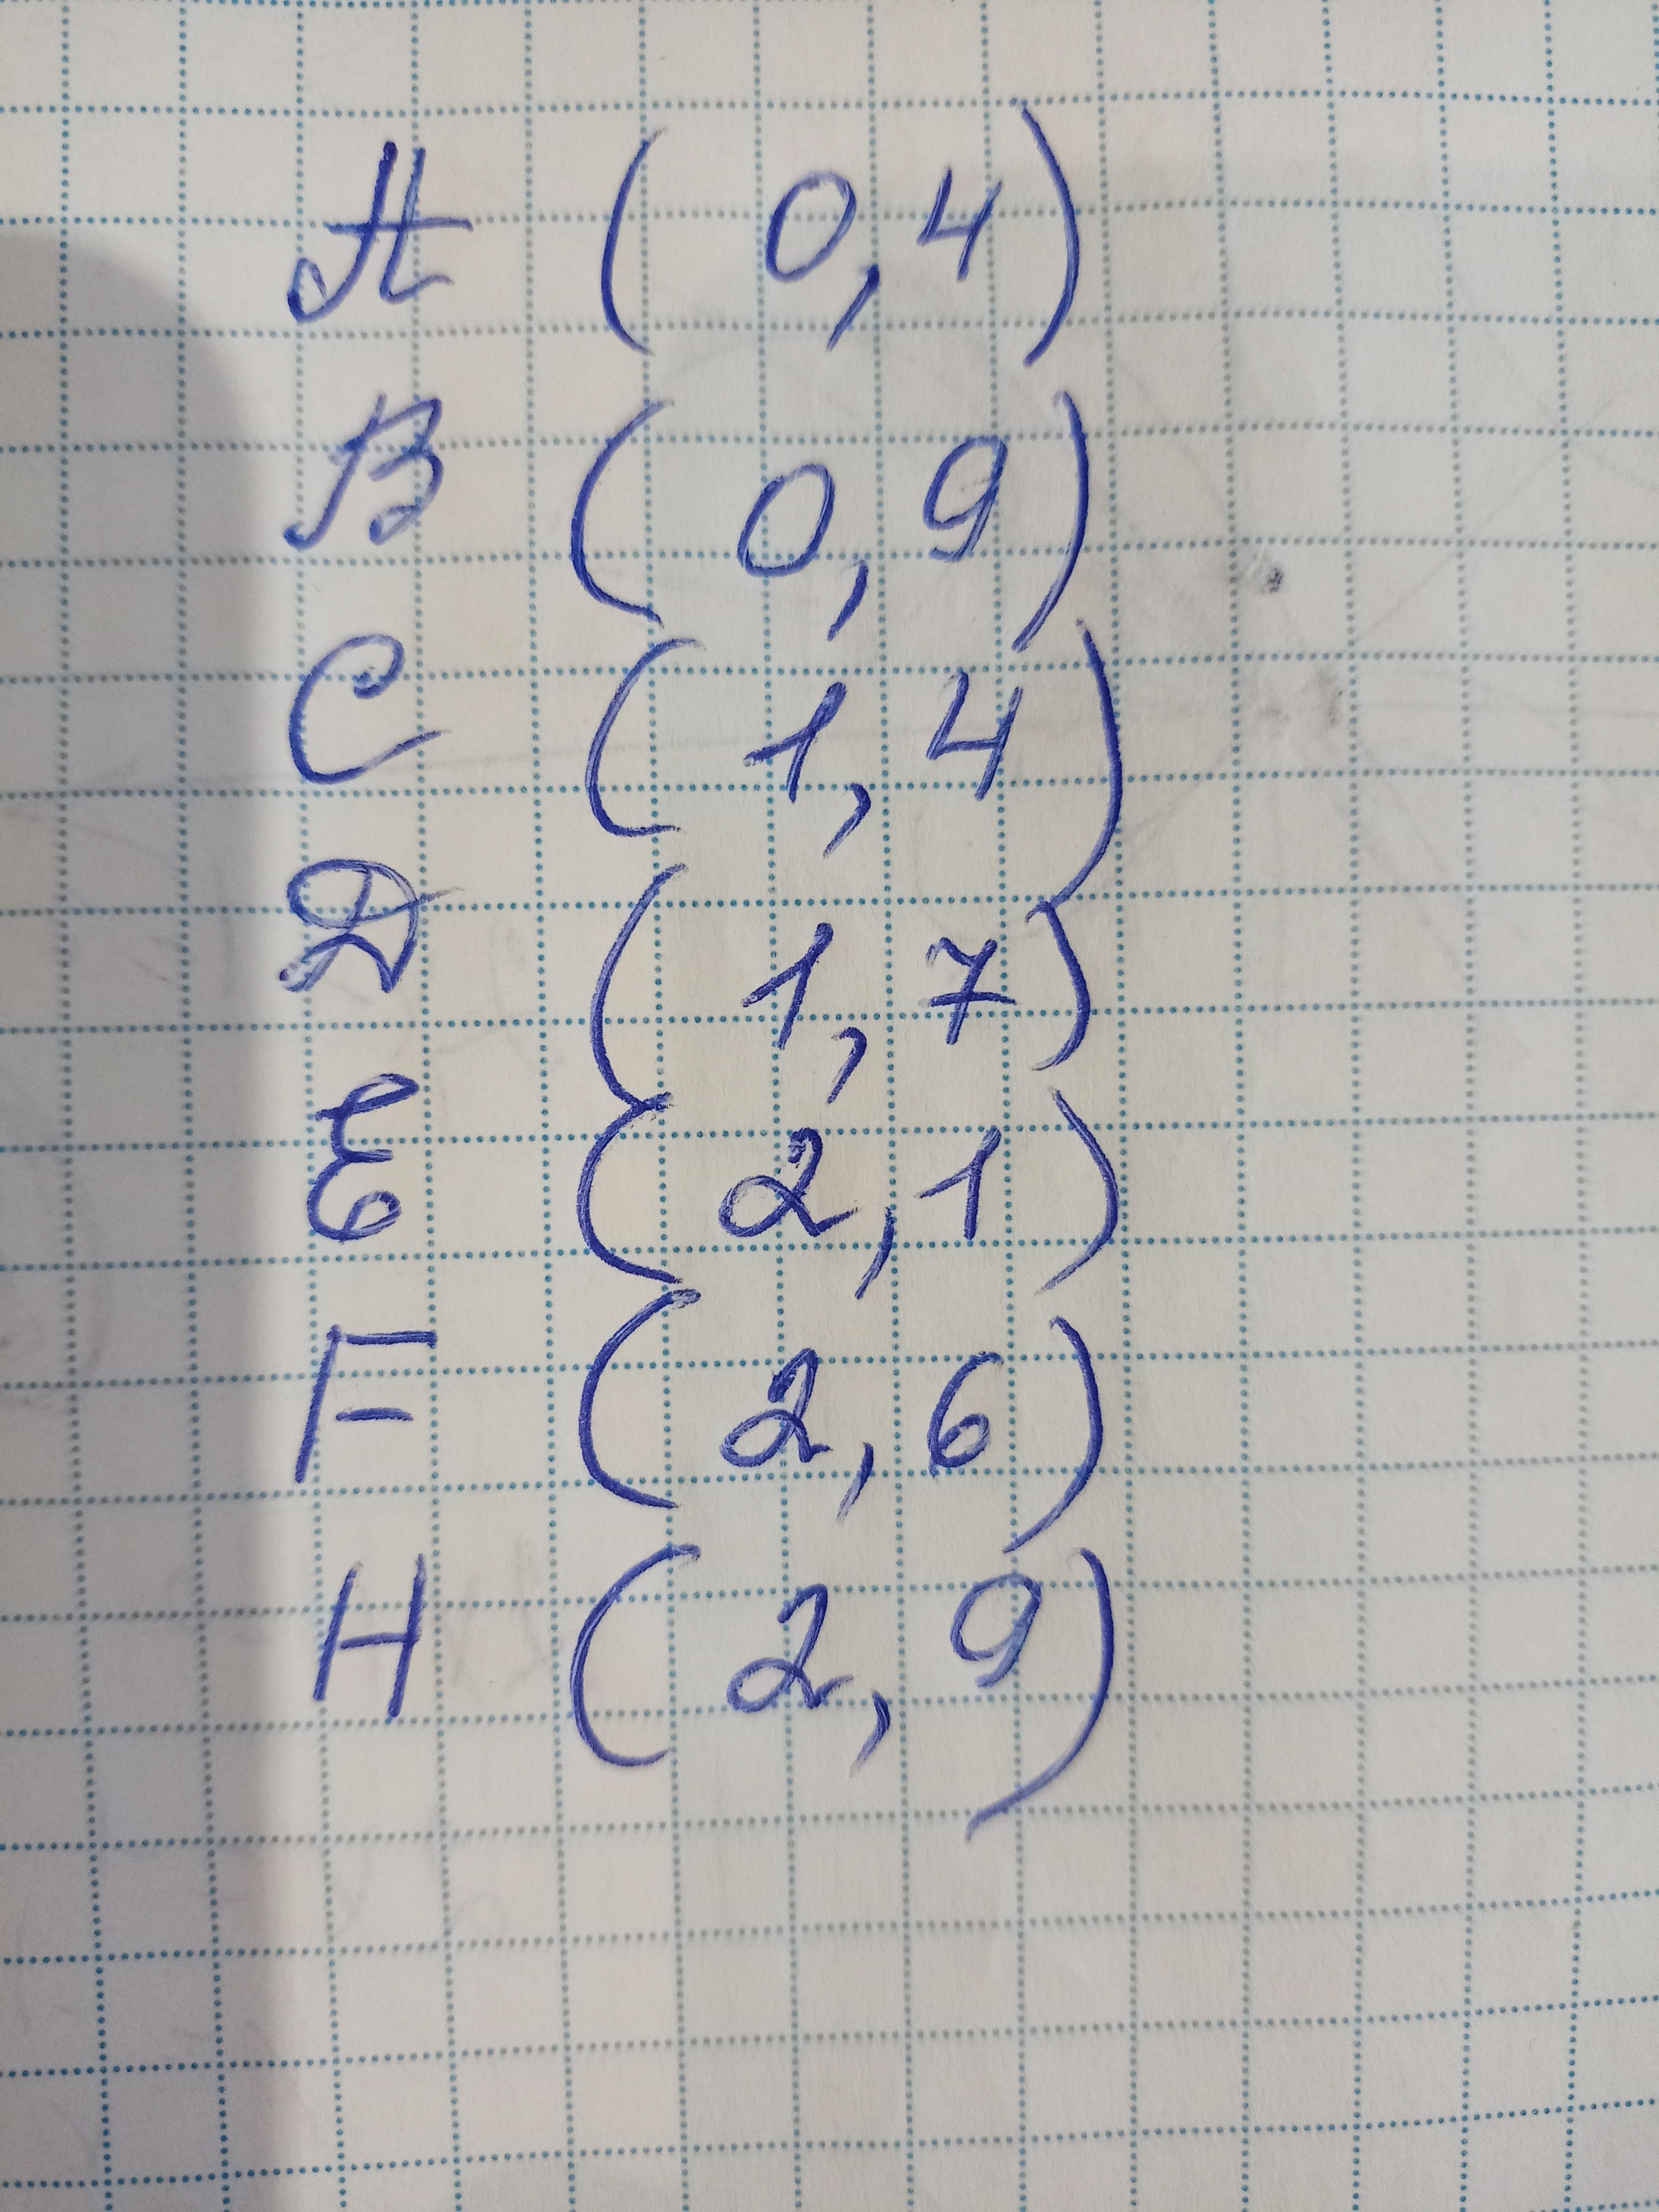 A (0,4)
B (0,9)
C (1,4)
D (1,7)
E (2,1)
F (2,6)
H (2,9)